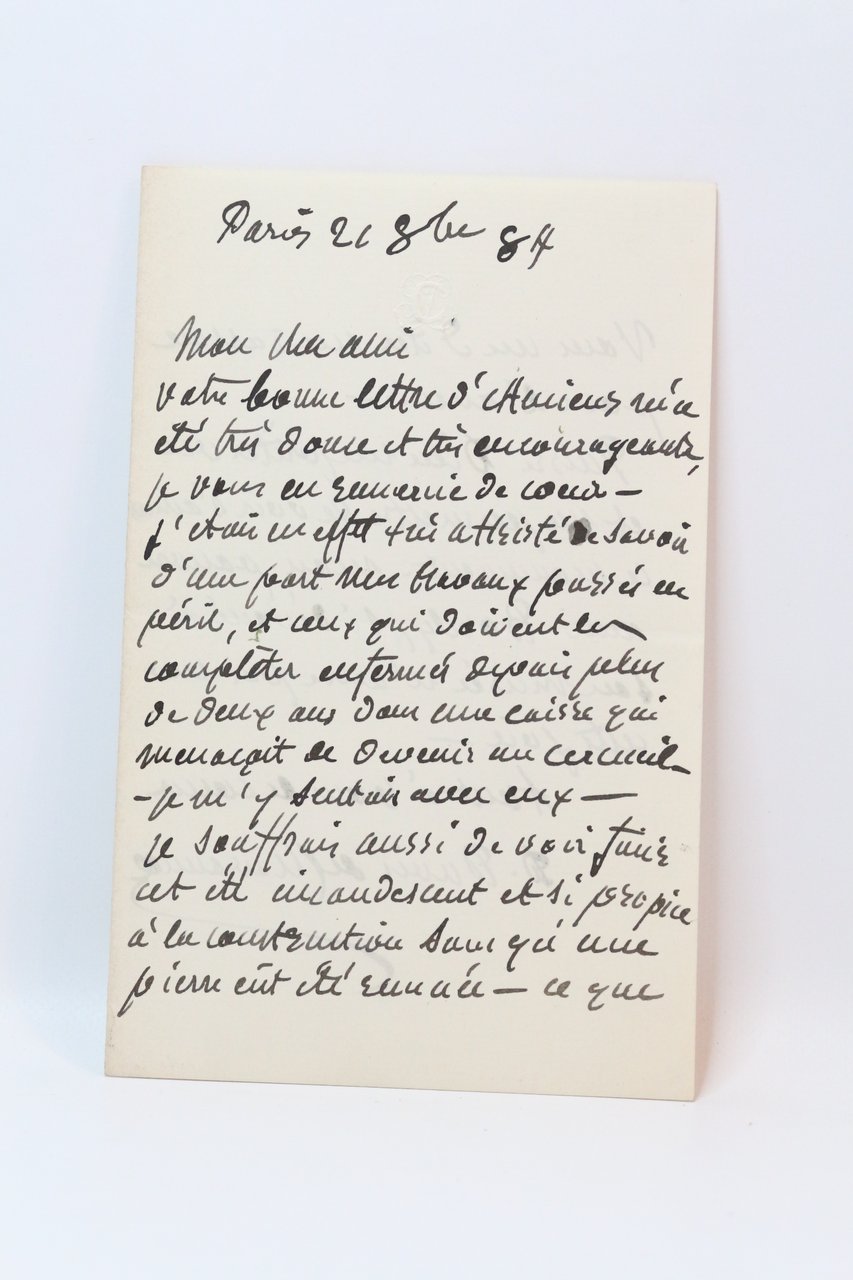 Paris 21 8bre 84
Mon cher ami
votre bonne lettre d'Amiens m'a
été très douce et très encourageante,
je vous en remercie de coeur —
j'étais en effet très attristé de savoir
d'une part mes travaux passés en
péril, et ceux qui doivent les
compléter enfermés depuis plus
de deux ans dans une caisse qui
menaçait de devenir un cercueil —
- je m'y sentais avec eux —
je souffrais aussi de voir fuir
cet été incandescent et si propice
à la construction sans qu'une
pierre eût été remuée — ce que